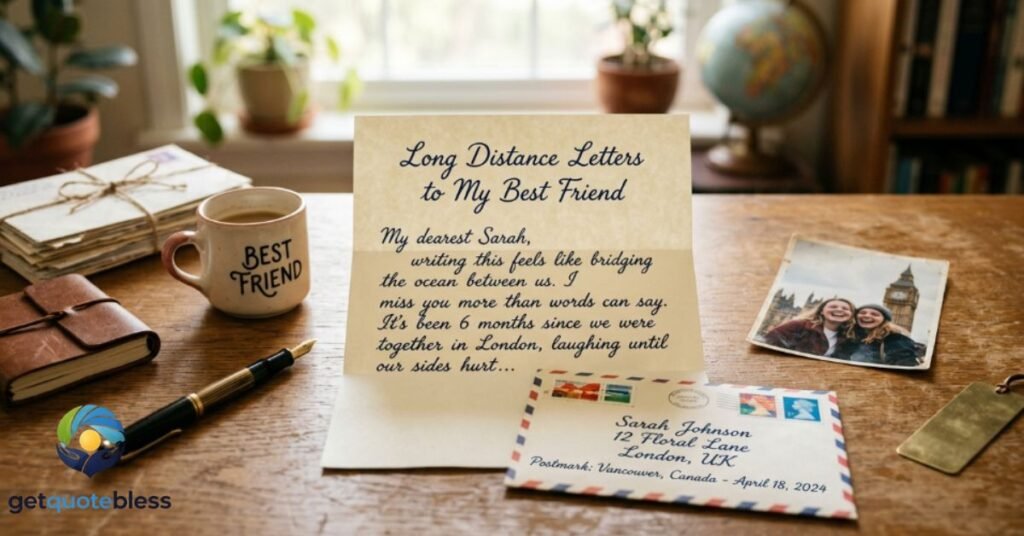 Long Distance Letters
to My Best Friend
My dearest Sarah,
writing this feels like bridging
the ocean between us. I
miss you more than words can say.
It's been 6 months since we were
together in London, laughing until
our sides hurt...
BEST
FRIEND
Sarah Johnson
12 Floral Lane
London, UK
Postmark: Vancouver, Canada - April 18, 2024
getquotebless